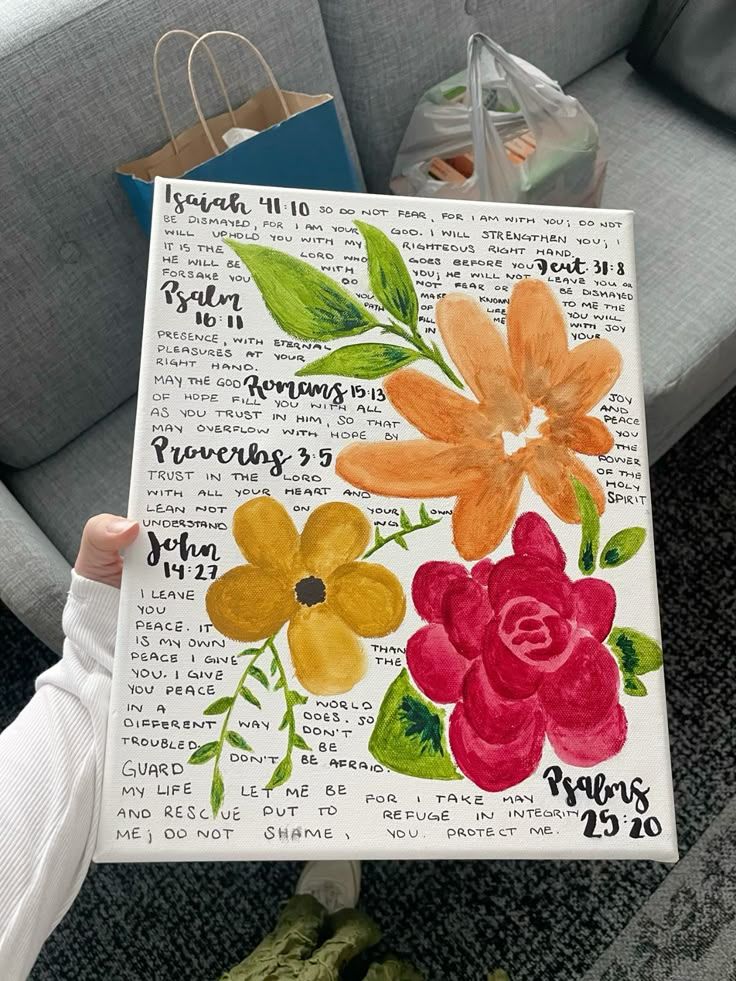 Isaiah 41:10 SO DO NOT FEAR, FOR I AM WITH YOU; DO NOT
BE DISMAYED, FOR I AM YOUR GOD. I WILL STRENGTHEN YOU; I
WILL UPHOLD YOU WITH MY RIGHTEOUS RIGHT HAND.
IT IS THE LORD WHO GOES BEFORE YOU Deut. 31:8
HE WILL BE WITH YOU; HE WILL NOT LEAVE YOU OR
FORSAKE YOU DO NOT FEAR OR BE DISMAYED
Psalm 16:11 MAKE KNOWN TO ME THE
PATH OF YOU WILL
FILL IN WITH JOY
YOUR
PRESENCE, WITH ETERNAL
PLEASURES AT YOUR
RIGHT HAND.
MAY THE GOD Romans 15:13
OF HOPE FILL YOU WITH ALL JOY
AND PEACE
AS YOU TRUST IN HIM, SO THAT YOU
MAY OVERFLOW WITH HOPE BY THE
POWER
OF THE
HOLY
SPIRIT
Proverbs 3:5
TRUST IN THE LORD
WITH ALL YOUR HEART AND
LEAN NOT ON YOUR OWN
UNDERSTANDING
John
14:27
I LEAVE
YOU
PEACE. IT
IS MY OWN
PEACE I GIVE
YOU. I GIVE
YOU PEACE
IN A
DIFFERENT WAY THAN
THE
WORLD
DOES. SO
DON'T
BE
TROUBLED.
DON'T BE AFRAID.
GUARD
MY LIFE LET ME BE FOR I TAKE MAY Psalms
AND RESCUE PUT TO REFUGE IN INTEGRITY 25:20
ME; DO NOT SHAME, YOU. PROTECT ME.